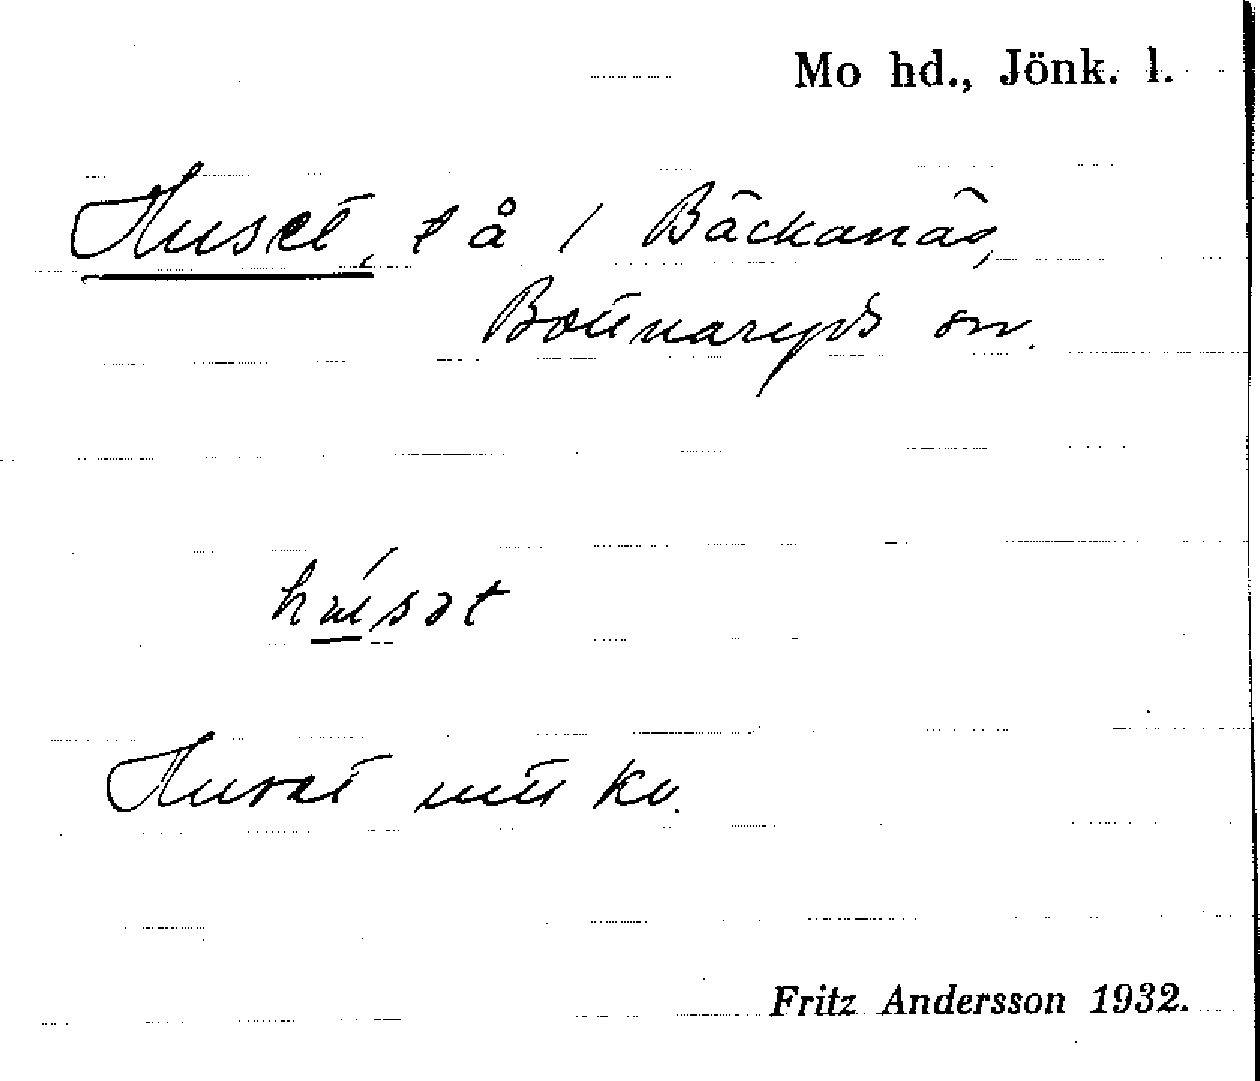 Mo hd., Jönk. l.
Huset, t å i Bäckanäs,
Bottnaryds sn.
húsət
Huset
Fritz Andersson 1932.